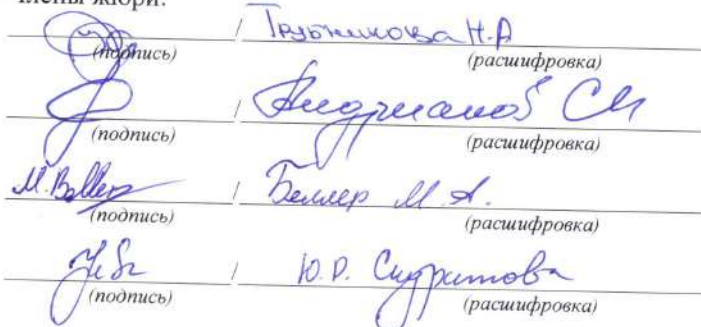 Члены жюри:
/ Трубникова Н.А
(подпись) (расшифровка)
/ Андрианов С И
(подпись) (расшифровка)
M. Beller / Беллер М. А.
(подпись) (расшифровка)
/ Ю. Р.
(подпись) (расшифровка)